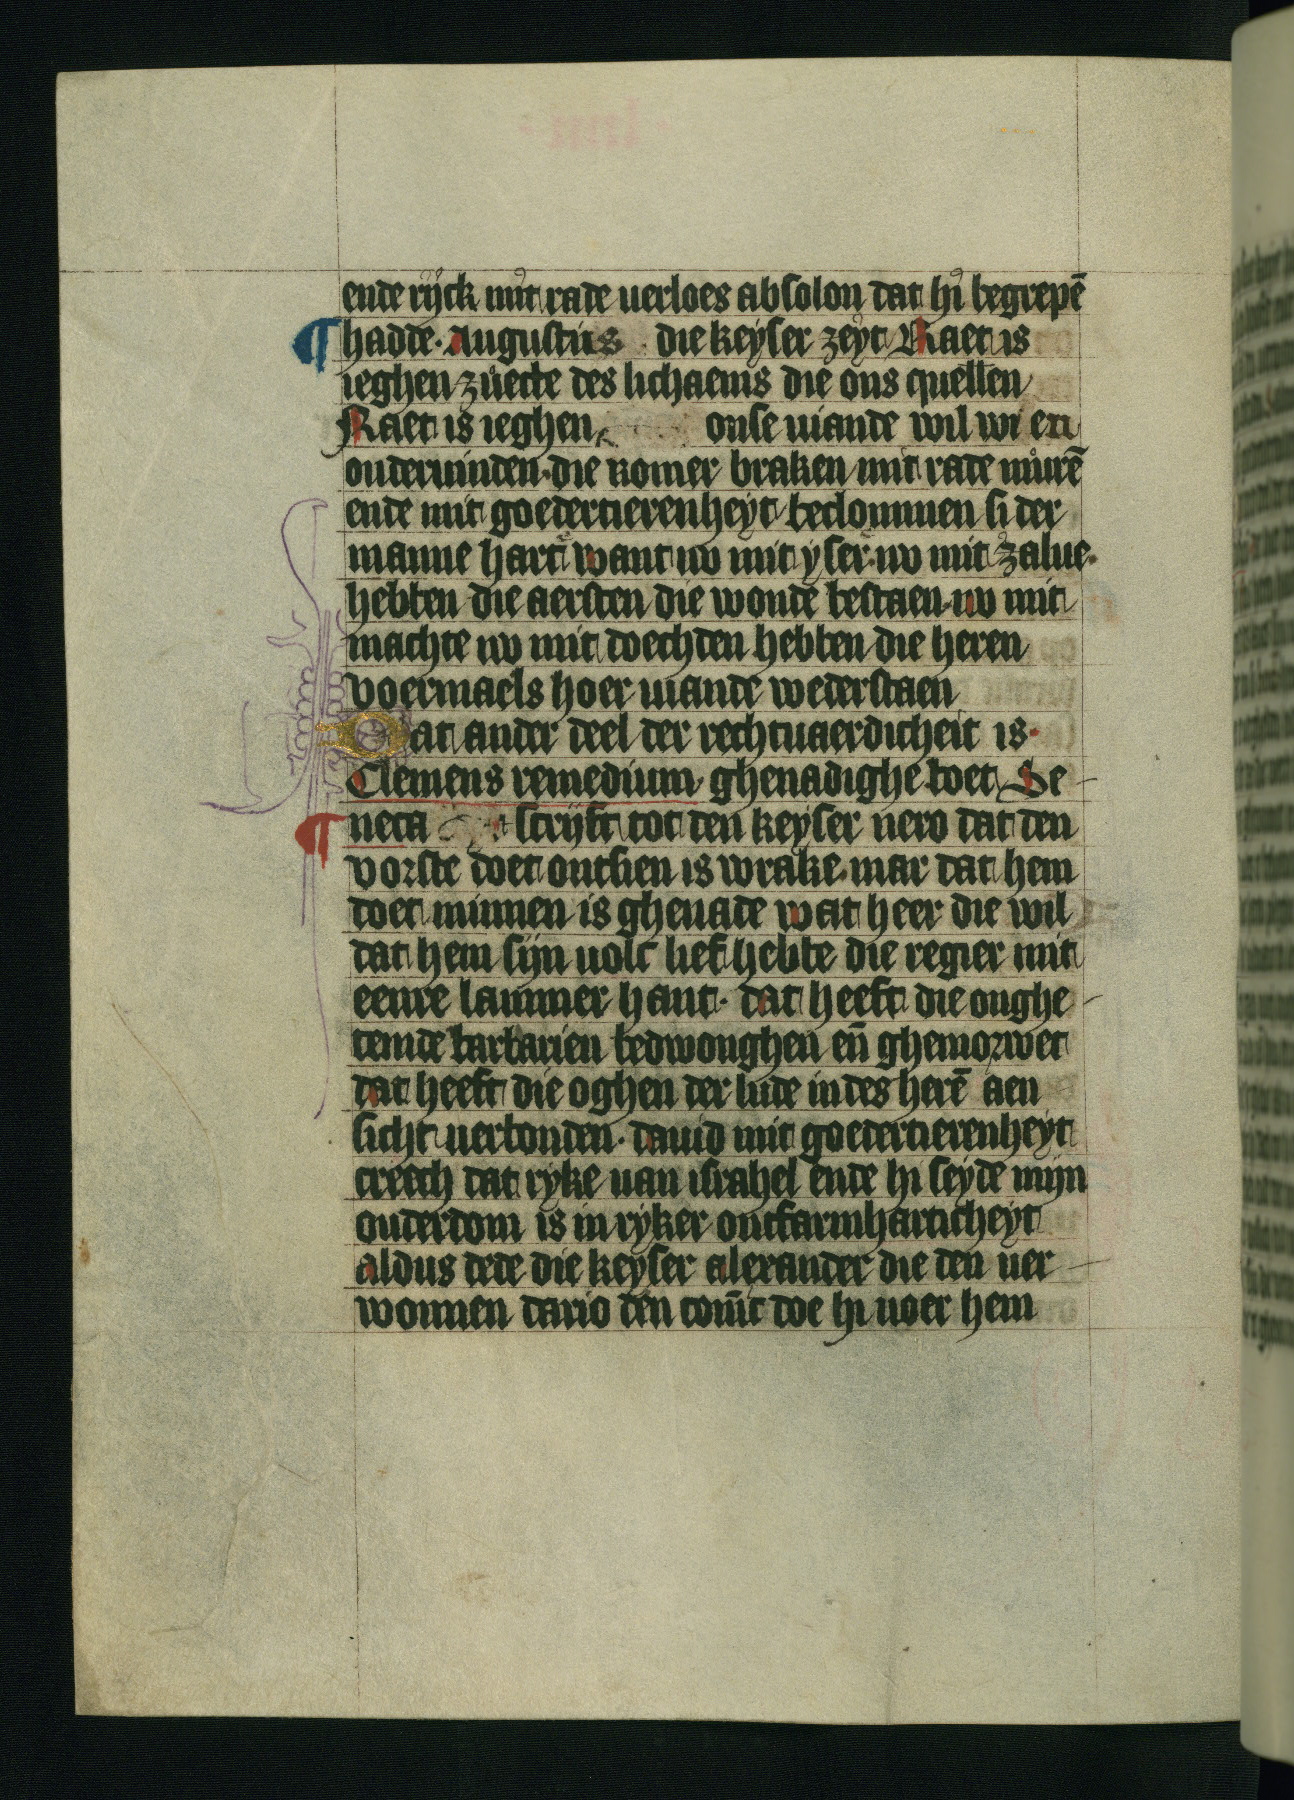 ende rijck mit rade verloes absolon dat hi begrepē
¶ hadde · Augustus · die keyser zeyt Raet is
ieghen zuecte des lichaems die ons quellen
Raet is ieghen onse viande wil wi en
ondervinden · die romer braken mit rade murē
ende mit goedertierenheyt beclommen si der
manne hart want nv mit yser · nv mit zalue ·
hebben die aersten die wonde bestaen · nv mit
machte nv mit doechden hebben die heren
voermaels hoer viande wederstaen
Dat ander deel der rechtuaerdicheit is ·
Clemens remedium ghenadighe boet Se
¶ neca scrijft tot den keyser nero dat den
vorste doet ontsien is wrake · mar dat hem
doet minnen is ghenade wat heer die wil
dat hem sijn volc lief hebbe die regier mit
eenre lammer hant · dat heeft die onghe
temde barbarien bedwonghen eñ ghemorwet
dat heeft die oghen der lude in des herē aen
sicht verbonden · dauid mit goedertierenheyt
creech dat ryke van israhel ende hi seyde mijn
ouderdom is in ryker ontfarmharticheyt
aldus dede die keyser alexander die den ver
wonnen dario den conīc doe hi voer hem